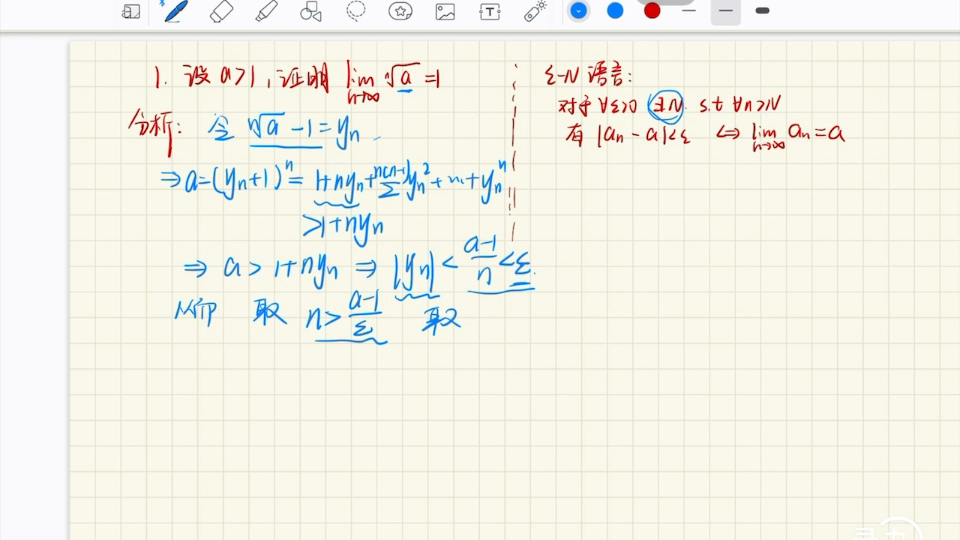 1. 设 a>1, 证明 lim n→∞ ⁿ√a = 1
分析: 令 ⁿ√a - 1 = yn
⇒ a = (yn+1)ⁿ = 1+nyn + n(n-1)/Σ yn² + ... + ynⁿ
>1+nyn
⇒ a > 1+nyn ⇒ |yn| < (a-1)/n < ε.
从而 取 n > (a-1)/ε 取
ε-N 语言:
对于 ∀ε>0 ∃N s.t ∀n>N
有 |an - a| < ε ⇔ lim n→∞ an = a